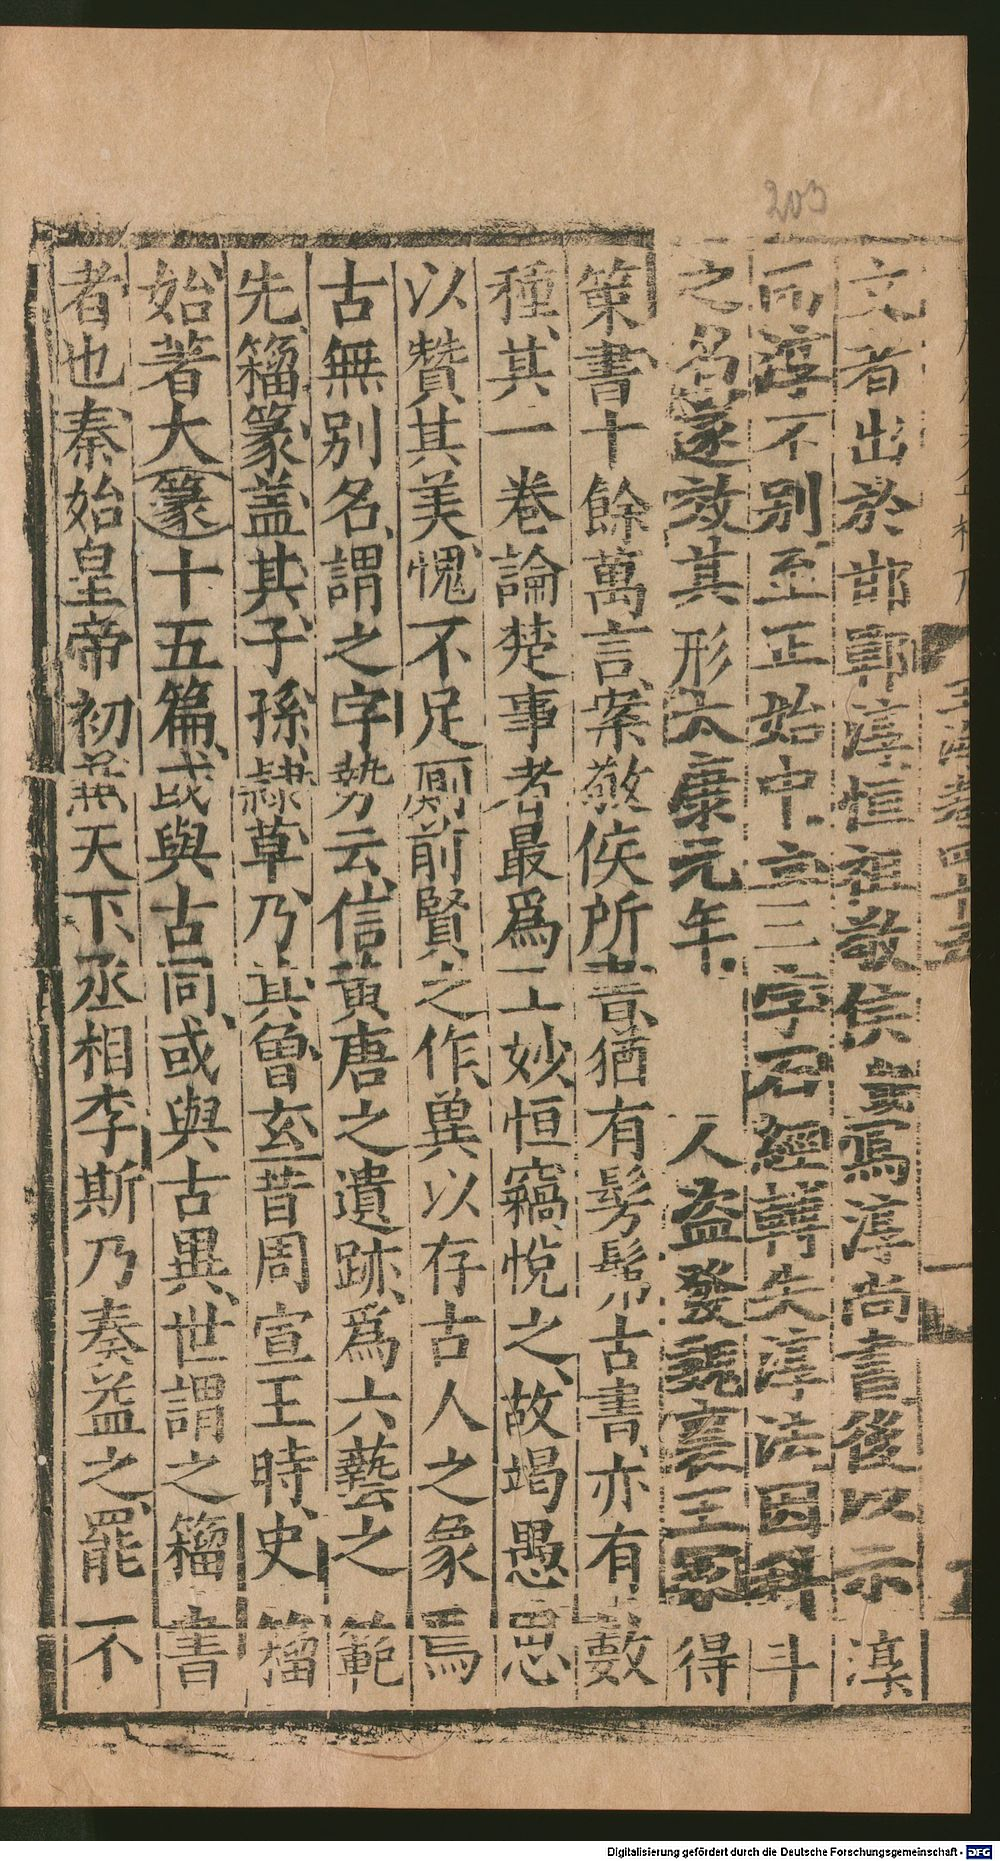 203
文者出於邯鄲淳恒祖敬侯寫淳尚書後以示淳
而淳不別至正始中立三字石經轉失淳法因科斗
之名遂效其形太康元年 人盜發魏襄王冢得
策書十餘萬言案敬侯所書猶有髣髴古書亦有數
種其一卷論楚事者最爲工妙恒竊悅之故竭愚思
以贊其美愧不足廁前賢之作冀以存古人之象焉
古無別名謂之字勢云信黃唐之遺跡爲六藝之範
先籀篆盖其子孫隷草乃其曾玄一昔周宣王時史籀
始著大篆十五篇或與古同或與古異世謂之籀書
者也秦始皇帝初兼天下丞相李斯乃奏益之罷不
玉海卷四十五
Digitalisierung gefördert durch die Deutsche Forschungsgemeinschaft - DFG